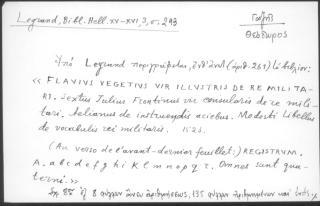 Legrand, Bibl. Hell. XV-XVI, 3, σ. 293
Γαζῆς
Θεόδωρος
Ὑπὸ Legrand περιγράφεται, (ἀριθ. 261)
« FLAVIUS VEGETIUS VIR ILLUSTRIS DE RE MILITA-
RI. Sextus Iulius Frontinus vir consularis de re mili-
tari. Aelianus de instruendis aciebus. Modesti libellus
de vocabulis rei militaris. 1523.
(Au verso de l'avant-dernier feuillet:) REGISTRUM.
A. a b c d e f g h i K l m n o p q r. Omnes sunt qua-
terni.»
8 φύλλα ἄνευ ἀριθμήσεως, 135 φύλλα ἀριθμημένα καὶ